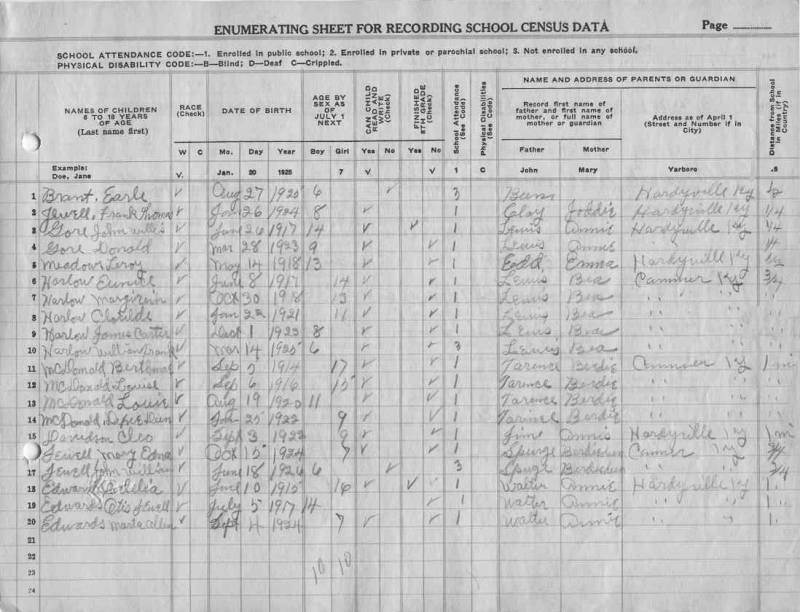 ENUMERATING SHEET FOR RECORDING SCHOOL CENSUS DATA Page
SCHOOL ATTENDANCE CODE:—1. Enrolled in public school; 2. Enrolled in private or parochial school; 3. Not enrolled in any school.
PHYSICAL DISABILITY CODE:—B—Blind; D—Deaf C—Crippled.
NAMES OF CHILDREN 6 TO 18 YEARS OF AGE (Last name first)
RACE (Check)
DATE OF BIRTH
AGE BY SEX AS OF JULY 1 NEXT
CAN CHILD READ AND WRITE (Check)
FINISHED 8TH GRADE (Check)
School Attendance (See Code)
Physical Disabilities (See Code)
NAME AND ADDRESS OF PARENTS OR GUARDIAN
Record first name of father and first name of mother, or full name of mother or guardian
Address as of April 1 (Street and Number if in City)
Distance from School in Miles (if in Country)
W C Mo. Day Year Boy Girl Yes No Yes No Father Mother
Example: Doe, Jane V. Jan. 20 1925 7 V V 1 C John Mary Yarboro .5
1 Brant, Earle Aug 27 1925 6 3 Hardyville Ky 1/2
2 Jewell, Frank Thomas Jan 26 1924 8 1 Clay Joddie Hardyville Ky 1/4
3 Gore John Willis Jan 26 1917 14 1 Lewis Annie Hardyville Ky 1/4
4 Gore Donald Mar 28 1923 9 1 Lewis Annie " " 1/4
5 Meadow Leroy May 14 1918 13 1 Edd Emma Hardyville Ky
6 Harlow Eunice June 8 1917 14 1 Lewis Bea Canmer Ky 3/4
7 Harlow Oct 30 1918 13 1 Lewis Bea " "
8 Harlow Clotilda Jan 22 1921 11 1 Lewis Bea " "
9 Harlow James Carter 1 1923 8 1 Lewis Bea " "
10 Harlow William Frank Mar 14 1925 6 3 Lewis Bea " "
11 McDonald Sep 5 1914 17 1 Tarence Berdie Canmer Ky 1 mi
12 McDonald Louise Sep 6 1916 15 1 Tarence Berdie " "
13 McDonald Louie Aug 19 1920 11 1 Tarence Berdie " "
14 McDonald Jan 25 1922 9 1 Berdie " "
15 Davidson Cleo Sept 3 1922 9 1 Jim Annis Hardyville Ky 1 mi
16 Jewell Mary Edna Oct 15 1924 7 1 Spurge Canmer Ky 3/4
17 Jewell John William June 18 1926 6 3 " " 3/4
18 Edwards 10 1915 16 1 Walter Annie Hardyville Ky 1
19 Edwards Otis Jewell July 5 1917 14 1 Walter Annie " " 1
20 Edwards Sept 4 1924 7 1 Walter Annie " " 1
21
22
23 10 10
24